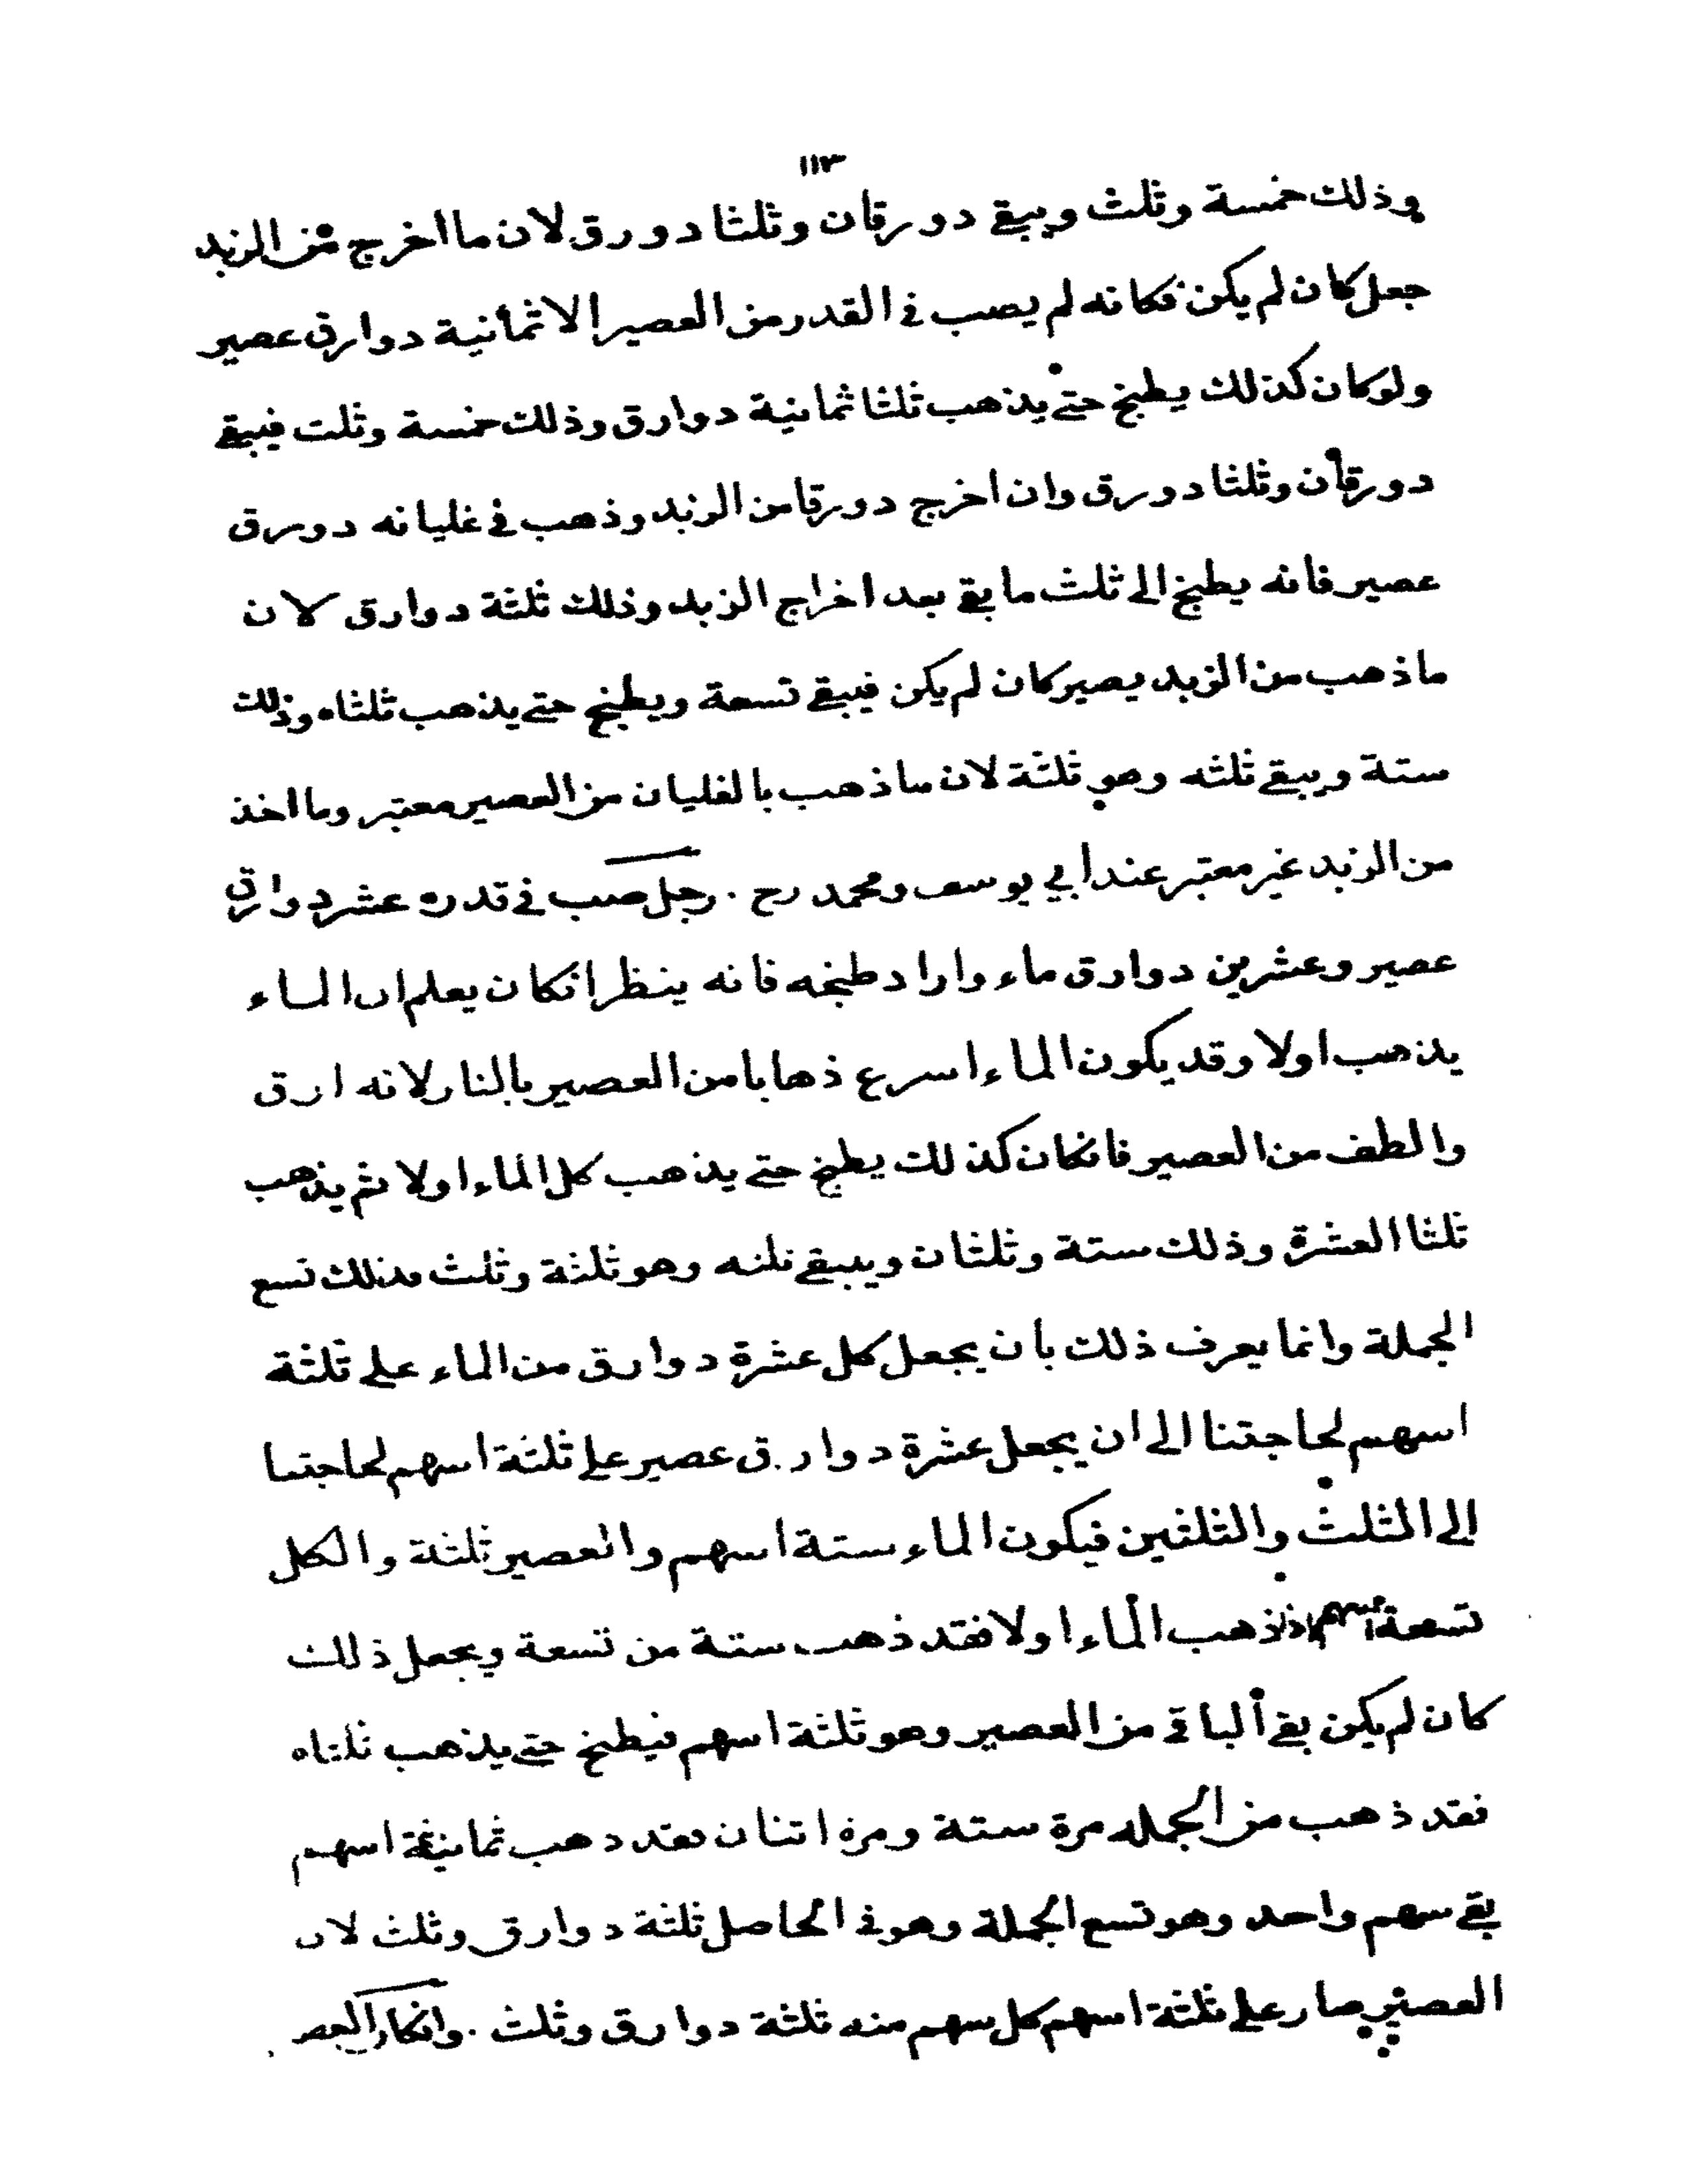 ١١٣
وذلك خمسة وثلث ويبقى دورقان وثلثا دورق لان ما اخرج من الزبد
جعل كان لم يكن فكانه لم يصب في القدر من العصير الا ثمانية دوارق عصير
ولو كان كذلك يطبخ حتى يذهب ثلثا ثمانية دوارق وذلك خمسة وثلث فيبقى
دورقان وثلثا دورق وان اخرج دورقا من الزبد وذهب في غليانه دورق
عصير فانه يطبخ الى ثلث ما بقي بعد اخراج الزبد وذلك ثلثة دوارق لان
ما ذهب من الزبد يصير كان لم يكن فيبقى تسعة ويطبخ حتى يذهب ثلثاه وذلك
ستة ويبقى ثلثه وهو ثلثة لان ما ذهب بالغليان من العصير معتبر وما اخذ
من الزبد غير معتبر عند ابي يوسف ومحمد رح . رجل صب في قدره عشر دوارق
عصير وعشرين دوارق ماء واراد طبخه فانه ينظر انكان يعلم ان الماء
يذهب اولا وقد يكون الماء اسرع ذهابا من العصير بالنار لانه ارق
والطف من العصير فانكان كذلك يطبخ حتى يذهب كل الماء اولا ثم يذهب
ثلثا العشرة وذلك ستة وثلثان ويبقى ثلثه وهو ثلثة وثلث فذلك تسع
الجملة وانما يعرف ذلك بان يجعل كل عشرة دوارق من الماء على ثلثة
اسهم لحاجتنا الى ان يجعل عشرة دوارق عصير على ثلثة اسهم لحاجتنا
الى الثلث والثلثين فيكون الماء ستة اسهم والعصير ثلثة والكل
تسعة اسهم فاذا ذهب الماء اولا فقد ذهب ستة من تسعة ويجعل ذلك
كان لم يكن بقي الباقي من العصير وهو ثلثة اسهم فيطبخ حتى يذهب ثلثاه
فقد ذهب من الجمله مرة ستة ومرة اثنان فقد ذهب ثمانية اسهم
بقي سهم واحد وهو تسع الجملة وهو في الحاصل ثلثة دوارق وثلث لان
العصير صار على ثلثة اسهم كل سهم منه ثلثة دوارق وثلث . وانكان